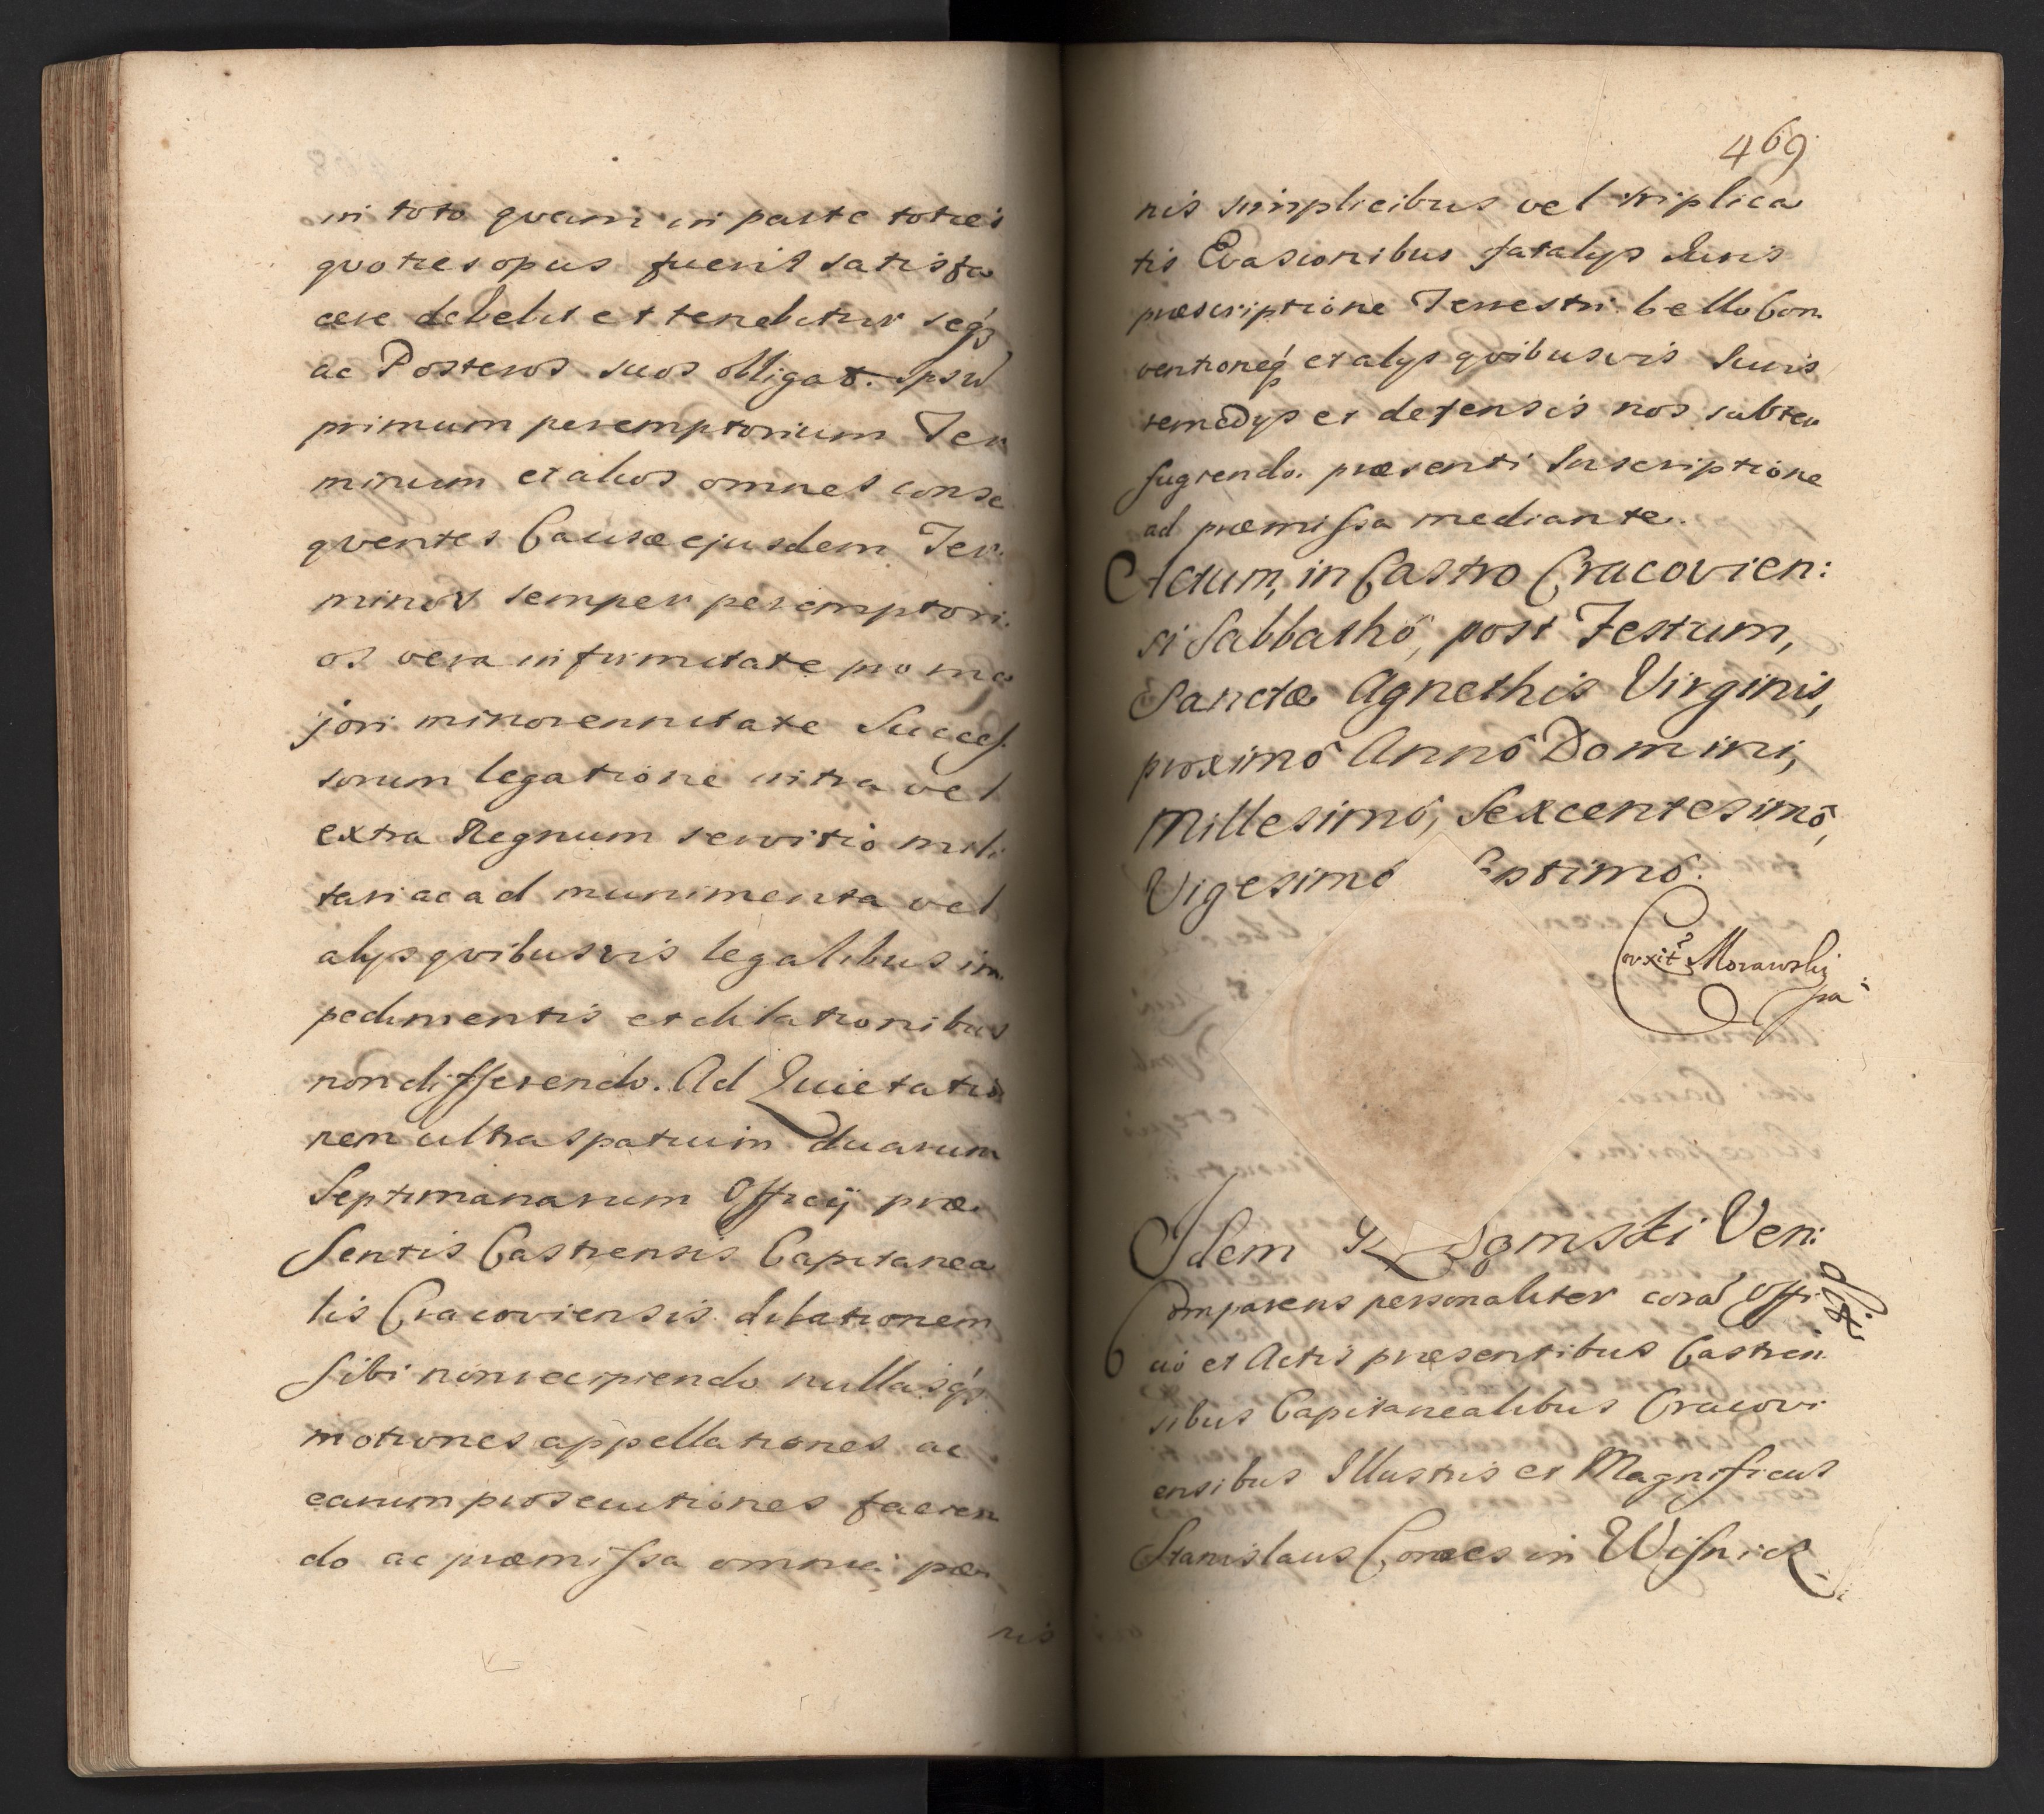 in toto quam in parte toties
quoties opus fuerit satisfa
cere debebit et tenebitur seq́
ac Posteros suos obligat. Ipsu
primum peremptorium Ter
minum et alios omnes conse
quentes Causæ ejusdem Ter
minos semper peremptori
os vera infirmitate pro ma
jori minorennitate Succes
sorum legatione intra vel
extra Regnum servitio mili
tari ac ad munimenta vel
alys quibusvis legalibus im
pedimentis et dilationibus
non differendo. Ad Quietatio
nem ultra spatium duarum
Septimanarum Officij præ
sentis Castrensis Capitanea
lis Cracoviensis dilationem
sibi non recipiendo nullasq́
motiones appellationes ac
earum prosecutiones facien
do ac præmissa omnia pæ
nis
469
nis simplicibus vel triplica
tis Evasionibus fatalys Juris
præscriptione Terrestri bello Con
ventioneq́ et alys quibusvis Juris
remedys et defensis nos subter
fugiendo præsenti Inscriptione
ad præmissa mediante.
Actum, in Castro Cracovien:
si Sabbathô, post Festum,
Sanctæ Agnethis Virginis,
proximô Annô Domini,
Millesimô, Sexcentesimô,
Vigesimô Septimô.
Corxit Morawski
Idem Ven:
Comparens personaliter corã Offi
cio et Actis præsentibus Castren
sibus Capitanealibus Cracovi
ensibus Illustris et Magnificus
Stanislaus Comes in Wisnicz